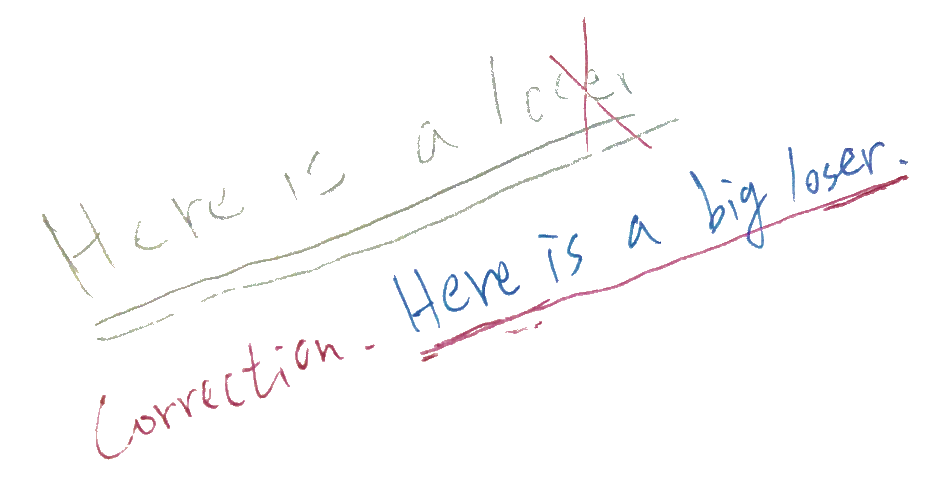 Here is a loser
Correction. Here is a big loser.